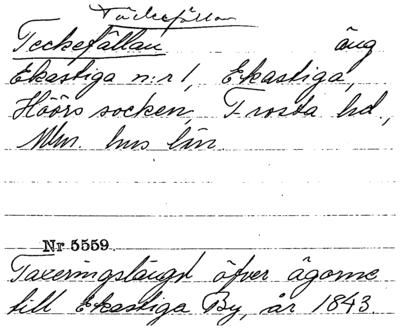 Täckefällan
Teckefällan äng
Ekastiga n:r 1, Ekastiga,
Höörs socken, Frosta hd.,
Mlm. hus län.
Nr 5559.
Taxeringslängd öfver ägorne
till Ekastiga By, år 1843.